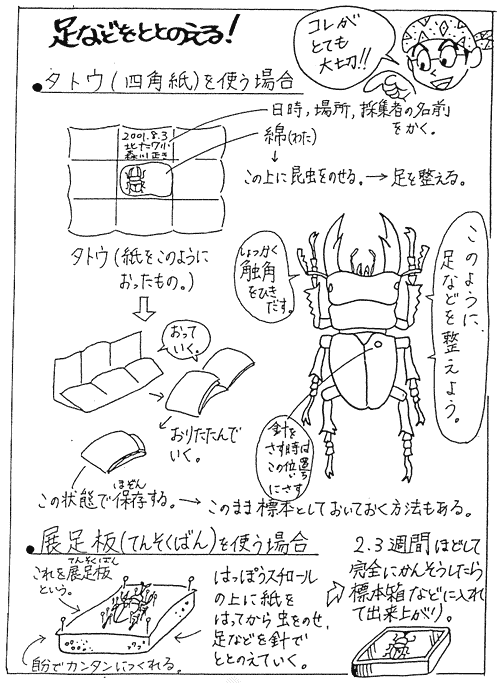 足などをととのえる!
コレが
とても
大切!!
●タトウ(四角紙)を使う場合
日時,場所,採集者の名前
をかく。
2001.8.3
綿(わた)
↓
この上に昆虫をのせる。→足を整える。
タトウ(紙をこのように
おったもの。)
しょっかく
触角
をひき
だす。
このように、
足などを整えよう。
おって
いく。
おりたたんで
いく。
針を
さす時は
この位置
にさす
ほぞん
この状態で保存する。→このまま標本としておいておく方法もある。
●展足板(てんそくばん)を使う場合
てんそくばん
これを展足板
という。
自分でカンタンにつくれる。
はっぽうスチロール
の上に紙を
はってから虫をのせ,
足などを針で
ととのえていく。
2.3週間ほどして
完全にかんそうしたら
標本箱などに入れ
て出来上がり。